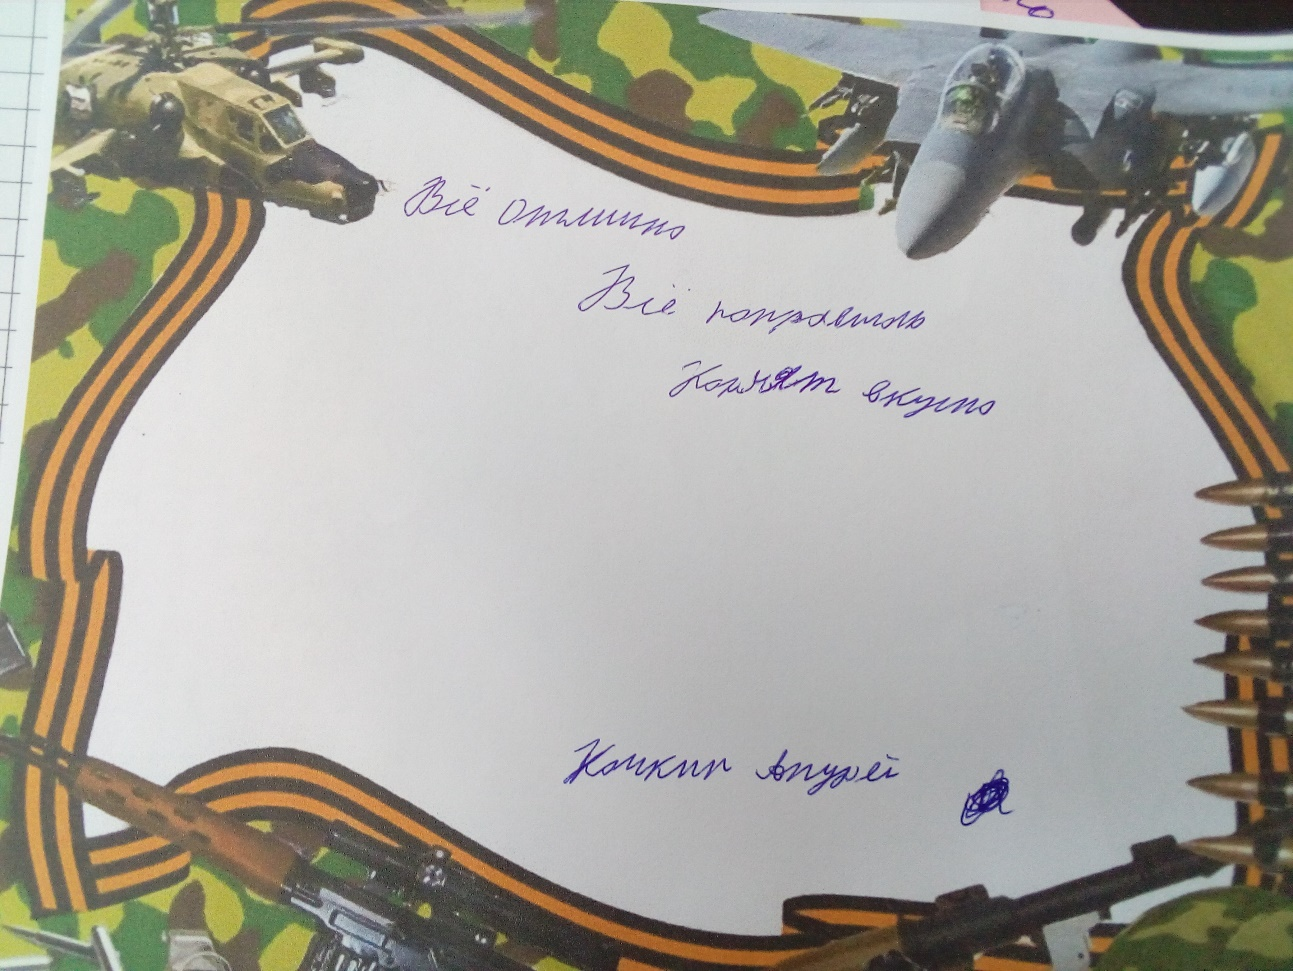 Всё отлично
Всё понравилось
Кормят вкусно
Андрей